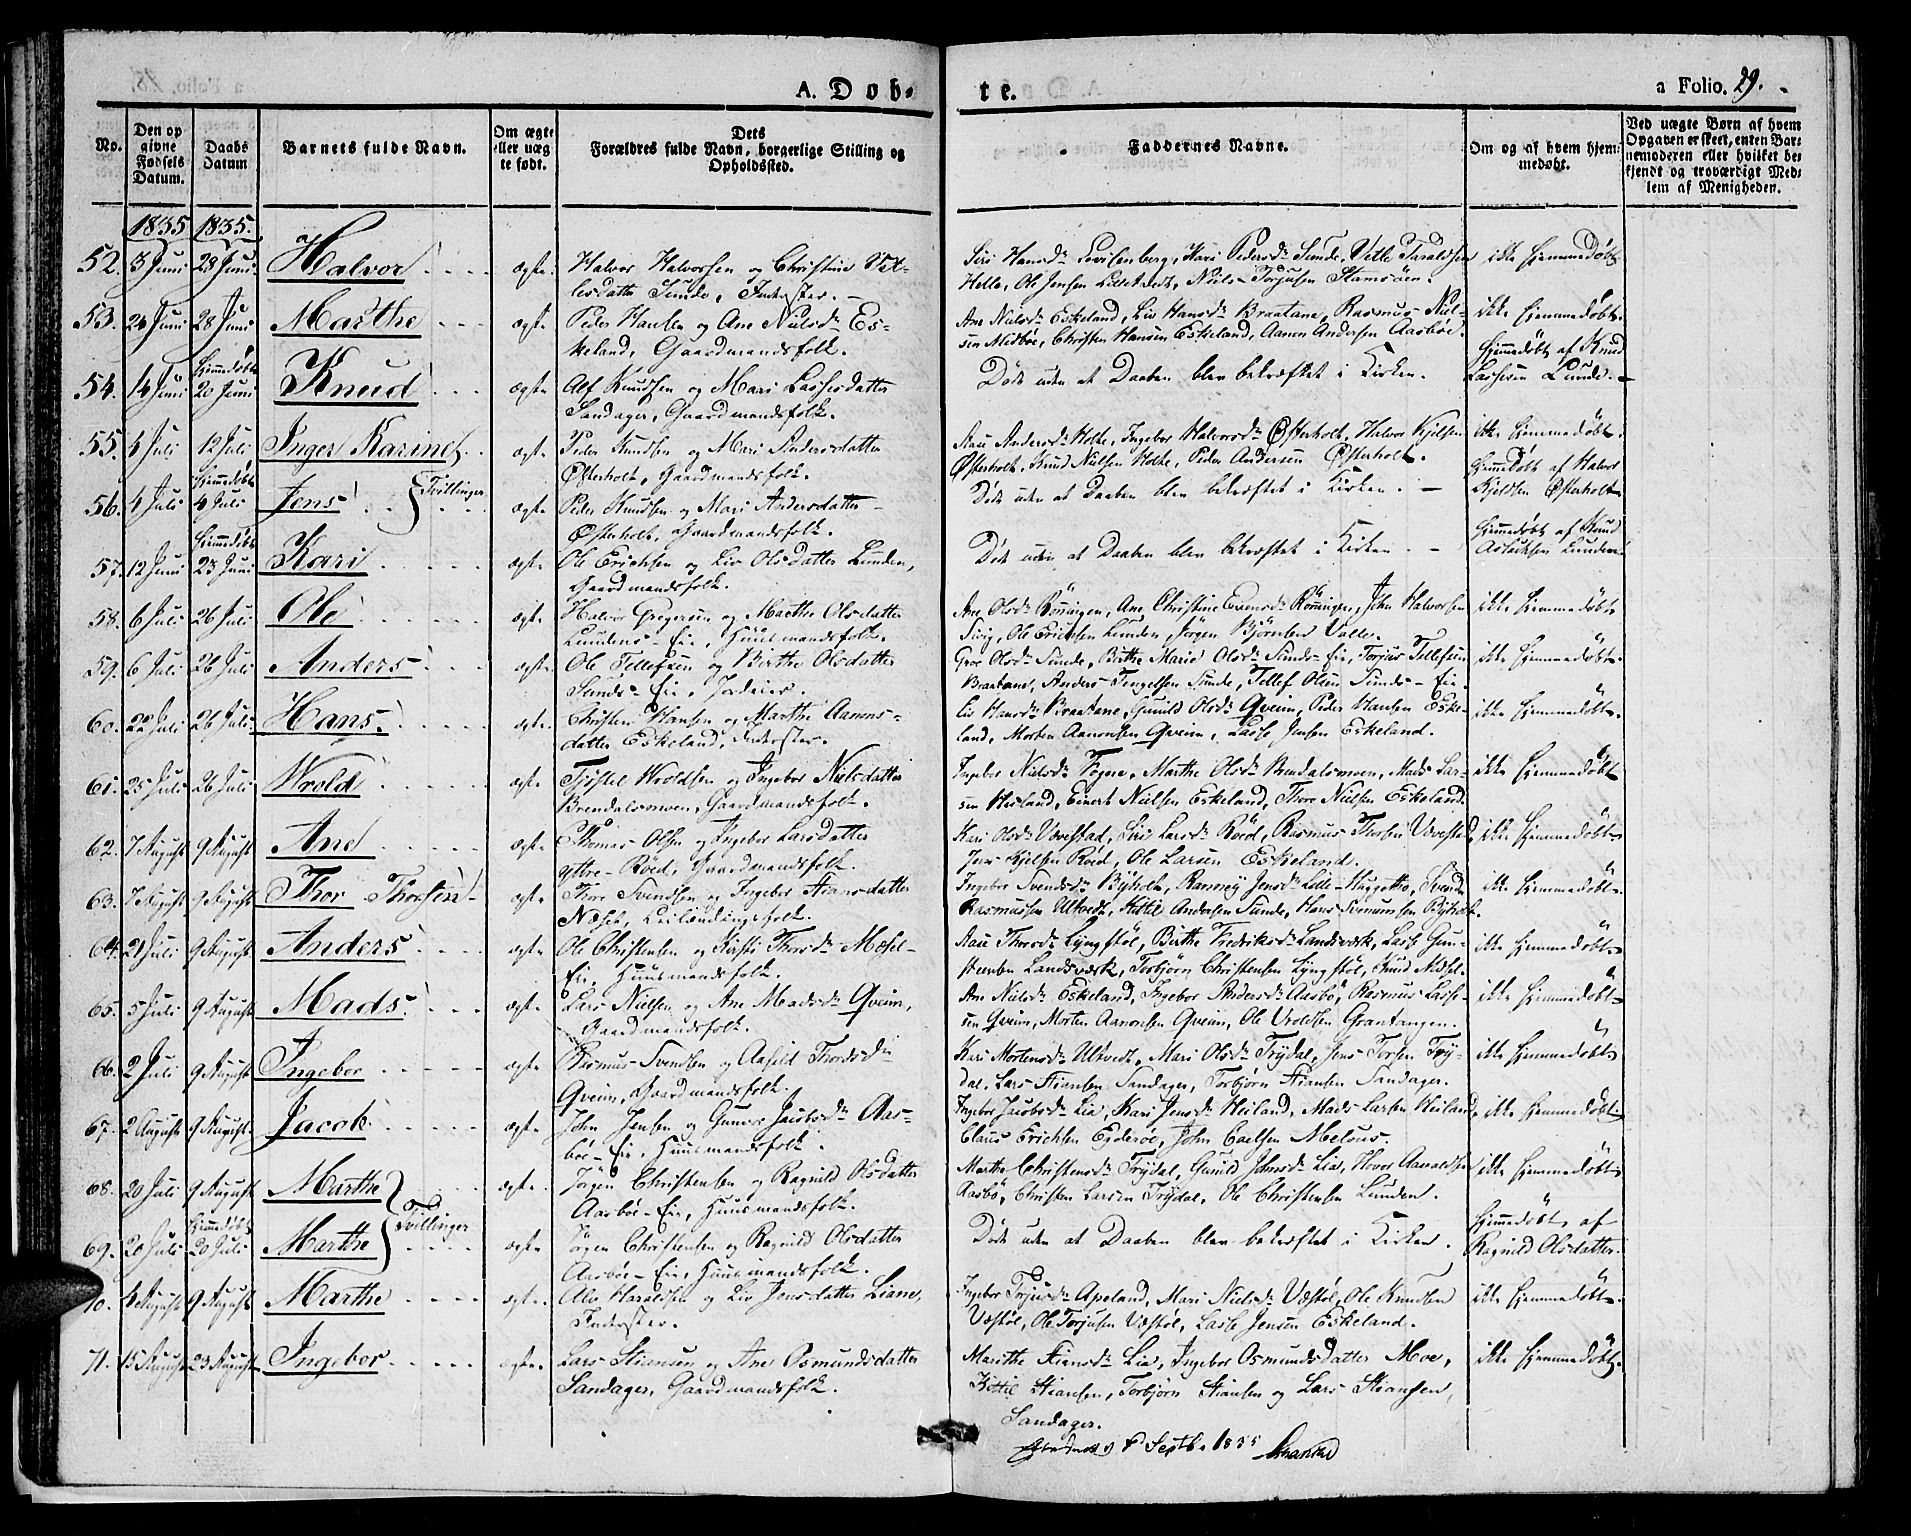 A. Døb-
te.
a Folio. 29.
No.
Den op
givne
Fødsels
Datum.
Daabs
Datum
Barnets fulde Navn.
Om ægte
eller uæg
te født.
Dets
Forældres fulde Navn, borgerlige Stilling og
Opholdssted.
Faddernes Navne.
Om og af hvem hjem-
medøbt.
Ved uægte Børn af hvem
Opgaven er skeet, enten Bar-
nemoderen eller hvilket be-
kjendt og troværdigt Med-
lem af Menigheden.
1835 1835.
52. 3 Juni 28 Juni Halvor ægte Halvor Halvorsen og Christine
datter Sunde, Inderster.
Siri Hansdr Pedersdr Sunde, Vetle Taraldsen
Helle, Ole Jensen Niels Torjusen
ikke hjemmedøbt
53. 24 Juni 28 Juni Marthe ægte Peder Hansen og Ane Nielsdr Es-
keland, Gaardmandsfolk.
Ane Nielsdr Eskeland, Liv Hansdr Braatane, Rasmus Niel-
sen Midbøe, Christen Hansen Eskeland, Aanon Andersen Aasbøe.
ikke hjemmedøbt
54. 14 Juni Hjemmedøbt 20 Juni Knud ægte Alf Knudsen og Mari Lassesdatter
Sandager, Gaardmandsfolk.
Døde uden at Daaben blev bekræftet i Kirken.
Hjemmedøbt af Knud
Lassesen Lunde.
55. 4 Juli 12 Juli Inger Karine ægte Peder Knudsen og Mari Andersdatter
Østerholt, Gaardmandsfolk.
Aase Andersdr Holte, Ingebor Halvorsdr Østerholt, Halvor Kjelsen
Østerholt, Knud Nielsen Holte, Peder Andersen Østerholt.
ikke hjemmedøbt.
56. 4 Juli Hjemmedøbt 4 Juli Jens Tvillinger ægte Peder Knudsen og Mari Andersdatter
Østerholt, Gaardmandsfolk.
Døde uden at Daaben blev bekræftet i Kirken.
Hjemmedøbt af Halvor
Kjeldsen Østerholt.
57. 12 Juni Hjemmedøbt 23 Juni Kari ægte Ole Erichsen og Liv Olsdatter Lunden,
Gaardmandsfolk.
Døde uden at Daaben blev bekræftet i Kirken.
Hjemmedøbt af Knud
Aslaksen Lunden
58. 6 Juli 26 Juli Ole ægte Halvor Gregersen og Marthe Olsdatter
Lundens-Eie, Huusmandsfolk.
Ane Olsdr Rønnigen, Ane Christine Evensdr Rønningen, John Halvorsen
Ole Erichsen Lunden, Jørgen Bjørnsen Valle.
ikke hjemmedøbt
59. 6 Juli 26 Juli Anders ægte Ole Tellefsen og Birthe Olsdatter
Sunds-Eie, Jordeier.
Groe Olsdr Sunde, Birthe Marie Olsdr Sunds-Eie, Torjus Tellefsen
Braatane, Anders Tengelsen Sunde, Tellef Olsen Sunds-Eie.
ikke hjemmedøbt.
60. 22 Juli 26 Juli Hans. ægte Christen Hansen og Marthe Aanons-
datter Eskeland, Inderster.
Liv Hansdr Braatane, Gunild Olsdr Qveim, Peder Hansen Eske-
land, Morten Aanonsen Qveim, Lasse Jensen Eskeland.
ikke hjemmedøbt.
61. 25 Juli 26 Juli Wrold ægte Tjøstel Wroldsen og Ingebor Nielsdatter
Brendalsmoen, Gaardmandsfolk.
Ingebor Nielsdr Fogne, Marthe Olsdr Brendalsmoen, Mads Lar-
sen Heiland, Einert Nielsen Eskeland, Thore Nielsen Eskeland.
ikke hjemmedøbt
62. 7 August 9 August Ane ægte Thomas Olsen og Ingebor Larsdatter
Ytre-Røed, Gaardmandsfolk.
Kari Olsdr Vævestad, Siri Larsdr Røed, Rasmus Thorsen Vævestad,
Jens Kjelsen Røed, Ole Larsen Eskeland.
ikke hjemmedøbt
63. 7 August 9 August Thor Thorsen ægte Thor Svendsen og Ingebor Stiansdatter
Næset, Leilændingsfolk.
Ingebor Svendsdr Byholt, Ranneÿ Jensdr Lille-Haggetho, Svend
Rasmussen Utkvedt, Kittil Andersen Sunde, Hans Simunsen Byholt.
ikke hjemmedøbt.
64. 21 Juli 9 August Anders ægte Ole Christensen og Kirsti Thorsdr Mæsel-
Eie, Huusmandsfolk.
Aase Thorsdr Lyngstøl, Birthe Fredriksdr Landsværk, Lasse Gun-
steensen Landsværk, Torbjørn Christensen Lyngstøl, Knud Mæsel.
ikke hjemmedøbt
65. 5 Juli 9 August Mads ægte Lars Nielsen og Ane Madsdr Qveim,
Gaardmandsfolk.
Ane Nielsdr Eskeland, Ingebor Andersdr Aasbø, Rasmus Lasse-
sen Qveim, Morten Aanonsen Qveim, Ole Vroldsen Grantangen.
ikke hjemmedøbt
66. 2 Juli 9 August Ingebor ægte Rasmus Svendsen og Aasild Thordsdr
Qveim, Gaardmandsfolk.
Kari Mortensdr Utkvedt, Mari Olsdr Trydal, Jens Torsen Try-
dal, Lars Stiansen Sandager, Torbjørn Stiansen Sandager.
ikke hjemmedøbt
67. 2 August 9 August Jacob ægte John Jensen og Gunvor Jacobsdr Aas-
bøe-Eie, Huusmandsfolk.
Ingebor Jacobsdr Lia, Kari Jensdr Heiland, Mads Larsen Heiland,
Claus Erichsen Egderøe, John Melous.
ikke hjemmedøbt.
68. 20 Juli 9 August Marthe ægte Jørgen Christensen og Ragnild Olsdatter
Aasbøe-Eie, Huusmandsfolk.
Marthe Christensdr Trydal, Gunild Johnsdr Lia, Hover Aanoldsen
Aasbø, Christen Larsen Trydal, Ole Christensen Lunden.
ikke hjemmedøbt
69. 20 Juli Hjemmedøbt 20 Juli Marthe Tvillinger ægte Jørgen Christensen og Ragnild Olsdatter
Aasbøe-Eie, Huusmandsfolk.
Døde uden at Daaben blev bekræftet i Kirken.
Hjemmedøbt af
Ragnild Olsdatter.
70. 4 August 9 August Marthe ægte Alev Haraldsen og Liv Jensdatter Liane,
Inderster.
Ingebor Torjusdr Apeland, Mari Nielsdr Væstøl, Ole Knudsen
Væstøl, Ole Torjusen Væstøl, Lasse Jensen Eskeland.
ikke hjemmedøbt.
71. 15 August 23 August Ingebor ægte Lars Stiansen og Ane Osmundsdatter
Sandager, Gaardmandsfolk.
Marithe Stiansdr Lia, Ingebor Osmundsdatter Moe,
Kittil Stiansen, Torbjørn Stiansen og Lars Stiansen,
Sandager.
ikke hjemmedøbt.
Septbr 1835